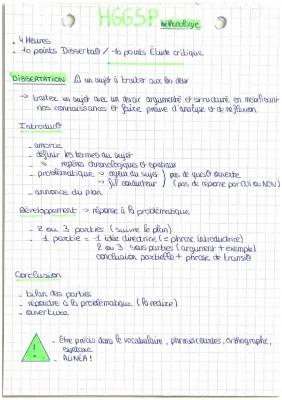 HGGSP méthodologie
. 4 Heures
. 10 points Dissertat° / 10 points Étude critique
DISSERTATION ⚠ un sujet à traiter aux deux
→ traiter un sujet avec un devoir argumenté et structuré en mobilisant
nos connaissances et faire preuve d'analyse et de réflexion
Introduct°
- amorce
- définir les termes du sujet
- repères chronologiques et spatiaux
- problématique → enjeu du sujet } pas de quest° ouverte
→ fil conducteur } (pas de réponse par OUI ou NON)
- annonce du plan
Développement → réponse à la problématique
- 2 ou 3 parties (suivre le plan)
- 1 partie = 1 idée directrice (= phrase introductrice)
2 ou 3 sous parties (argument + exemple)
conclusion partielle + phrase de transit°
Conclusion
- bilan des parties
- répondre à la problématique (la redire)
- ouverture
! - Etre précis dans le vocabulaire, phrases courtes, orthographe,
syntaxe
- ALINÉA !